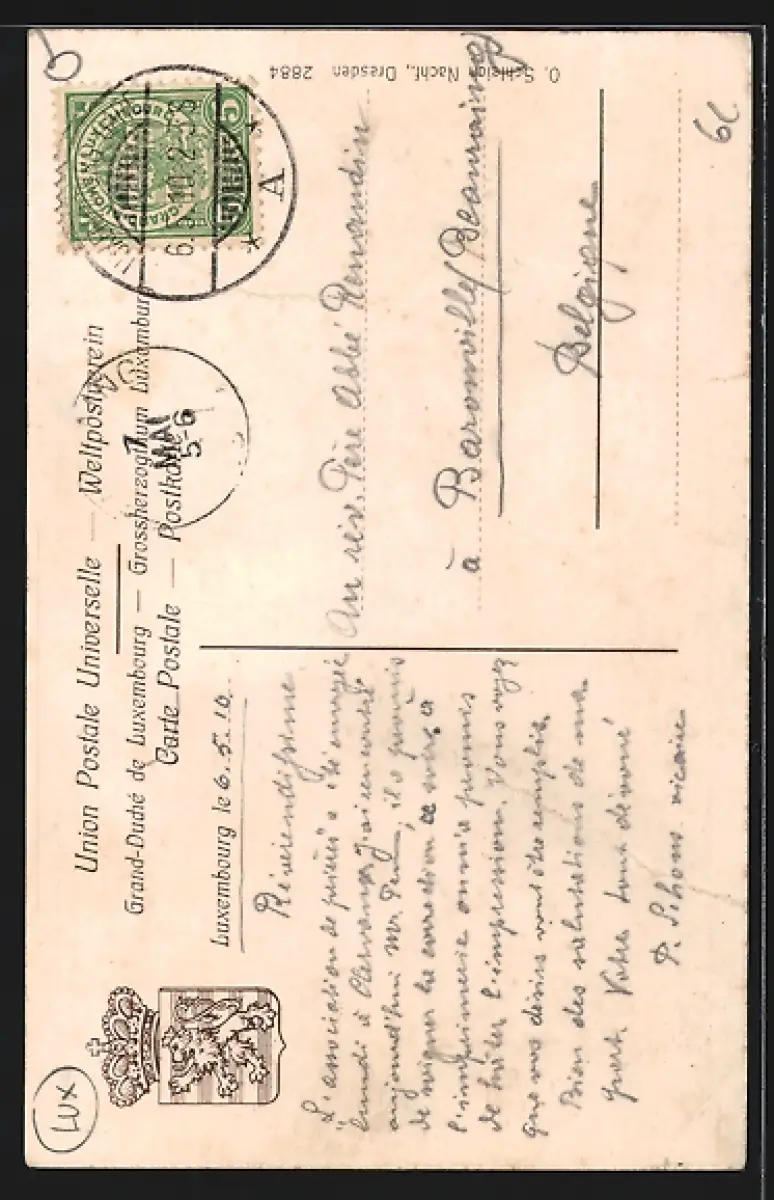 Union Postale Universelle — Weltpostverein
Grand-Duché de Luxembourg — Grossherzogthum Luxemburg
Carte Postale — Postkarte
Luxembourg le 6.5.10.
Révérendissime
L'association de prières a été envoyée
lundi à Clervaux. J'ai rencontré
aujourd'hui Mr. il a promis
de soigner la correction ce soir, à
l'imprimerie on m'a promis
de hâter l'impression. Vous voyez
que vos désirs vont être remplis.
Bien des salutations de ma
part. Votre tout dévoué
P. Schons vicaire
Au rév. Père Abbé Renaudin
à Baronville/Beauraing
Belgique
O. Schleich Nachf., Dresden 2884
5
A
6.5.10.2-3
7
MAI
5-6
6L
LUX